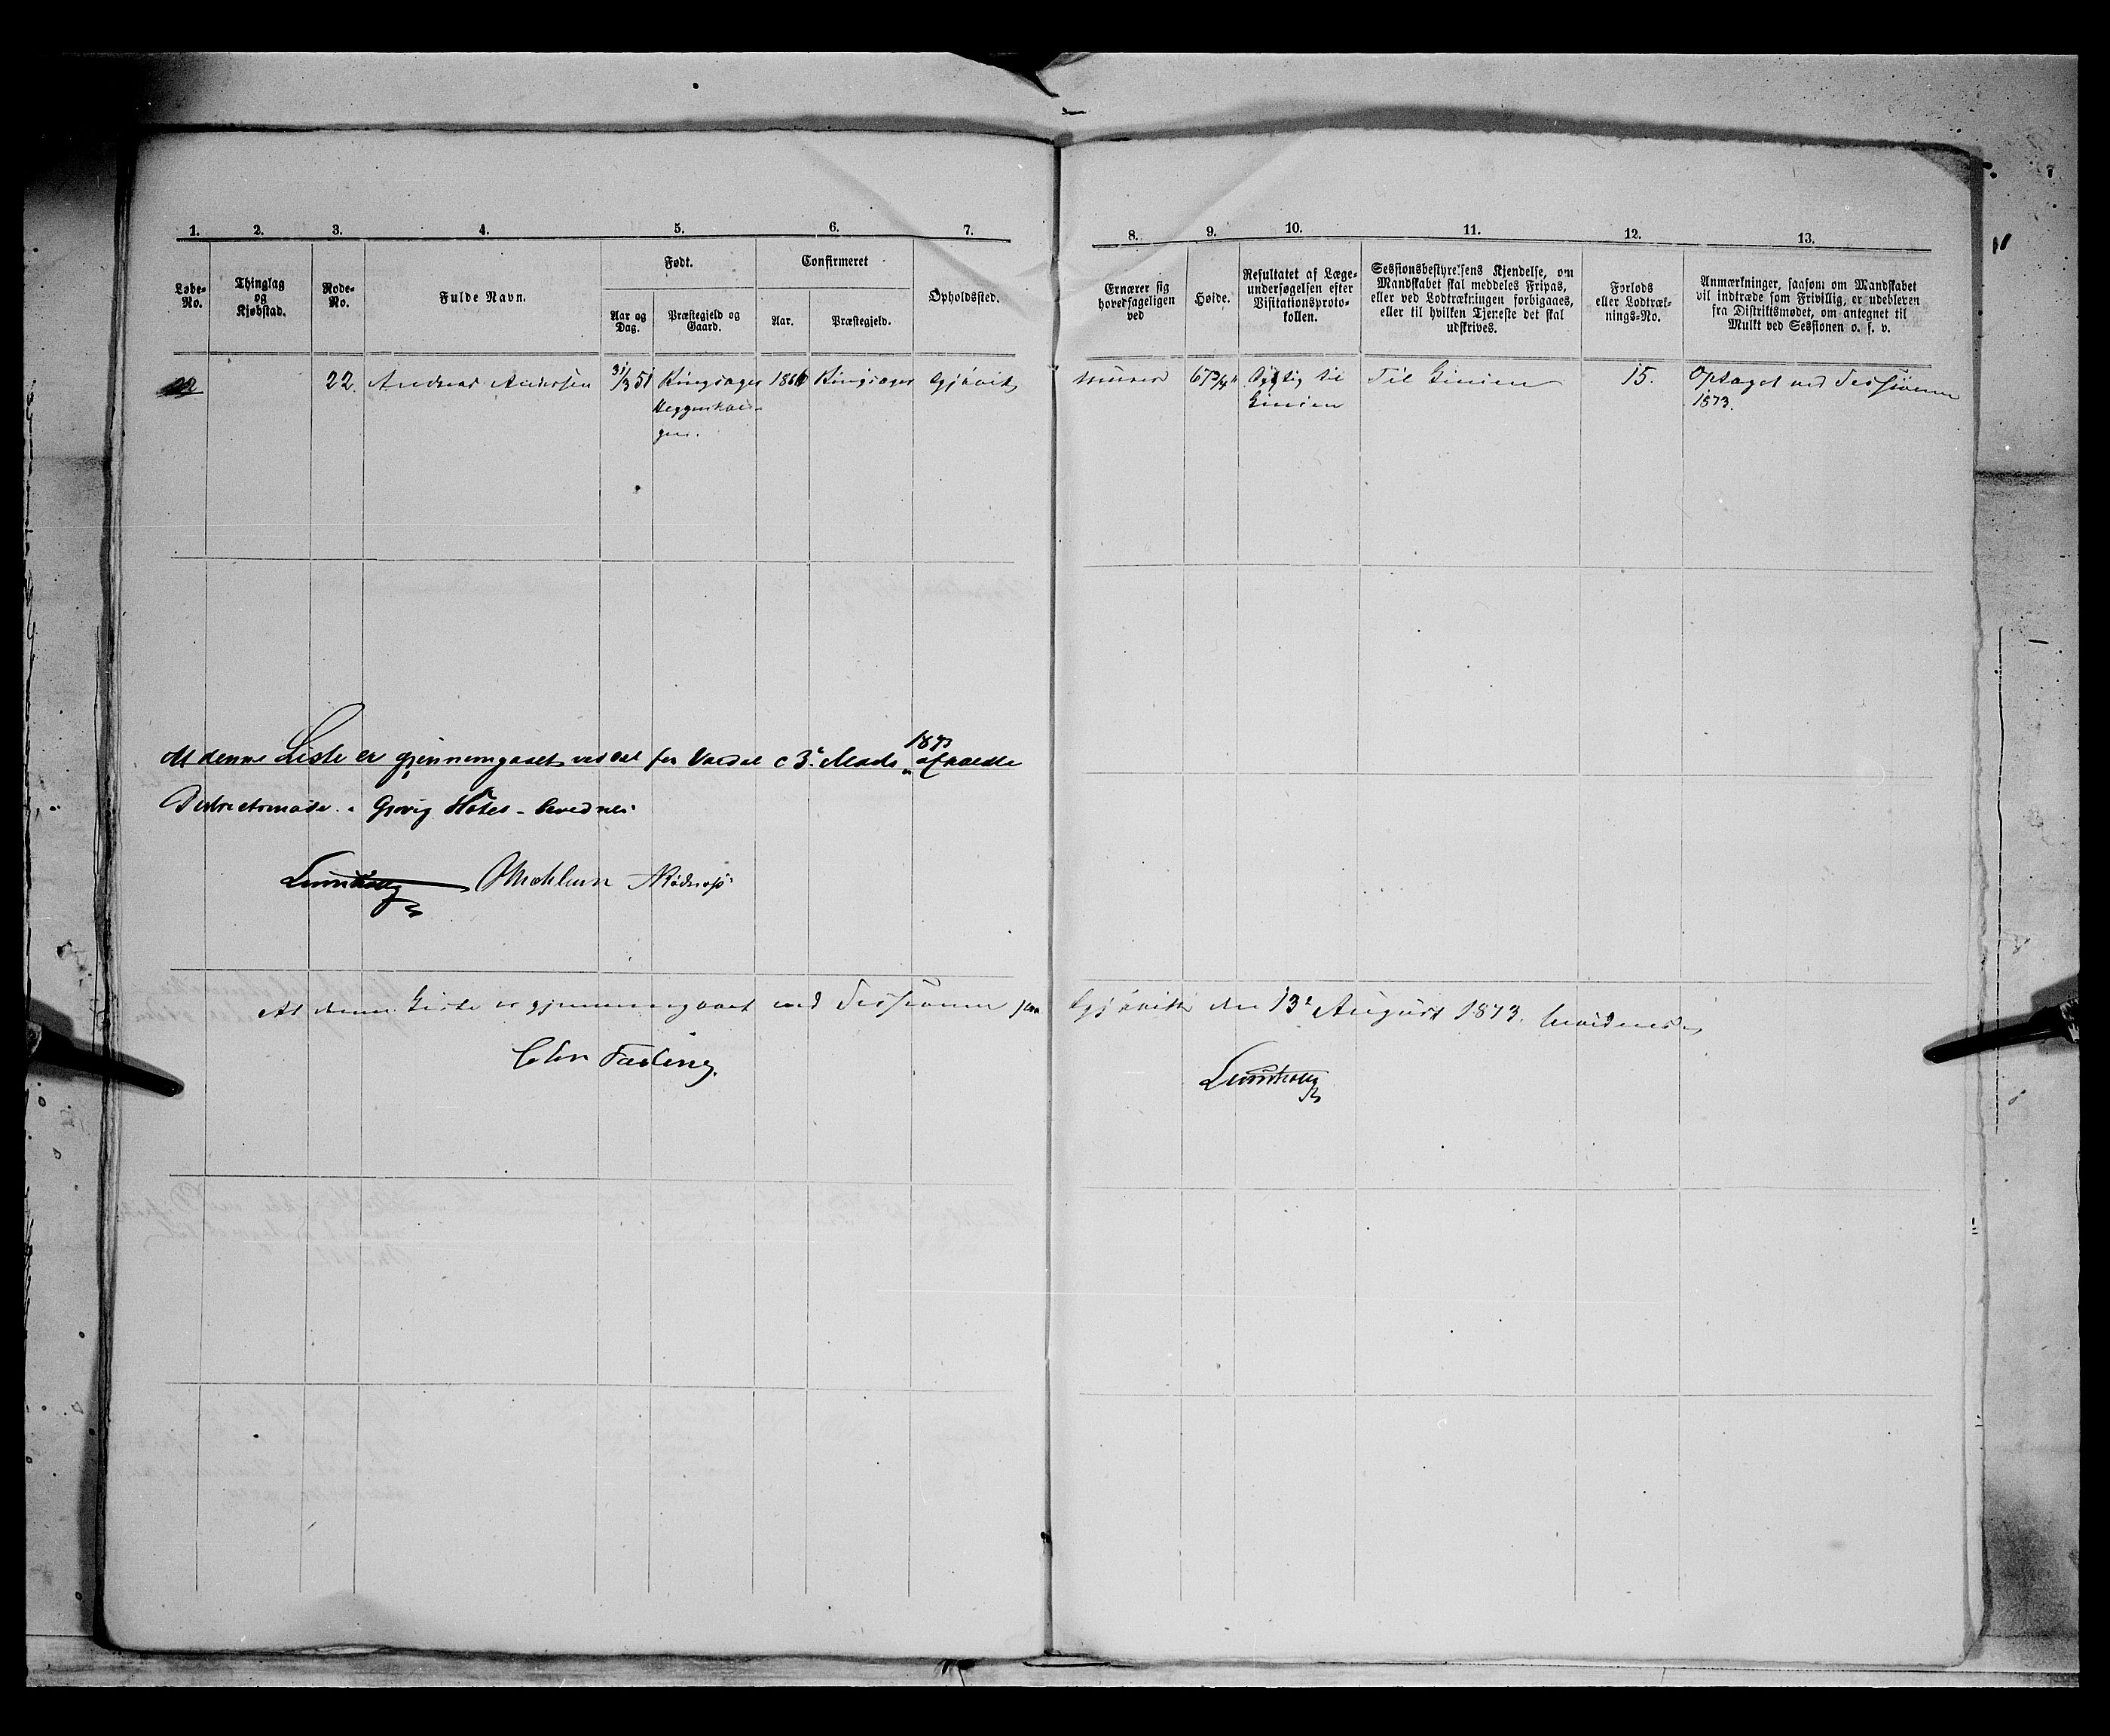 1. 2. 3. 4. 5. 6. 7.
Løbe-No.
Thinglag og Kjøbstad.
Rode-No.
Fulde Navn.
Født.
Aar og Dag.
Præstegjeld og Gaard.
Confirmeret
Aar.
Præstegjeld.
Opholdssted.
22. Andreas Andersen 31/3 51 Ringsager 186 Ringsager Gjøvik
At denne Liste er gjennemgaaet ved det for Vardal 3 1873 afholdte
Districtsmøde Gjøvig Hotel bevidnes
At denne Liste er gjennemgaaet ved Sessionen paa Gjøvik den 13de August 1873, bevidnes
Fasting.
8. 9. 10. 11. 12. 13.
Ernærer sig hovedsageligen ved
Høide.
Resultatet af Læge-
undersøgelsen efter
Visitationsproto-
kollen.
Sessionsbestyrelsens Kjendelse, om
Mandskabet skal meddeles Fripas,
eller ved Lodtrækningen forbigaaes,
eller til hvilken Tjeneste det skal
udskrives.
Forlods
eller Lodtræk-
nings-No.
Anmærkninger, saasom om Mandskabet
vil indtræde som Frivillig, er udebleven
fra Distriktsmødet, om antegnet til
Mulkt ved Sessionen o. s. v.
Murer 67 3/4" Dygtig til Til Linien 15. Optaget ved Sessionen
Linien 1873.